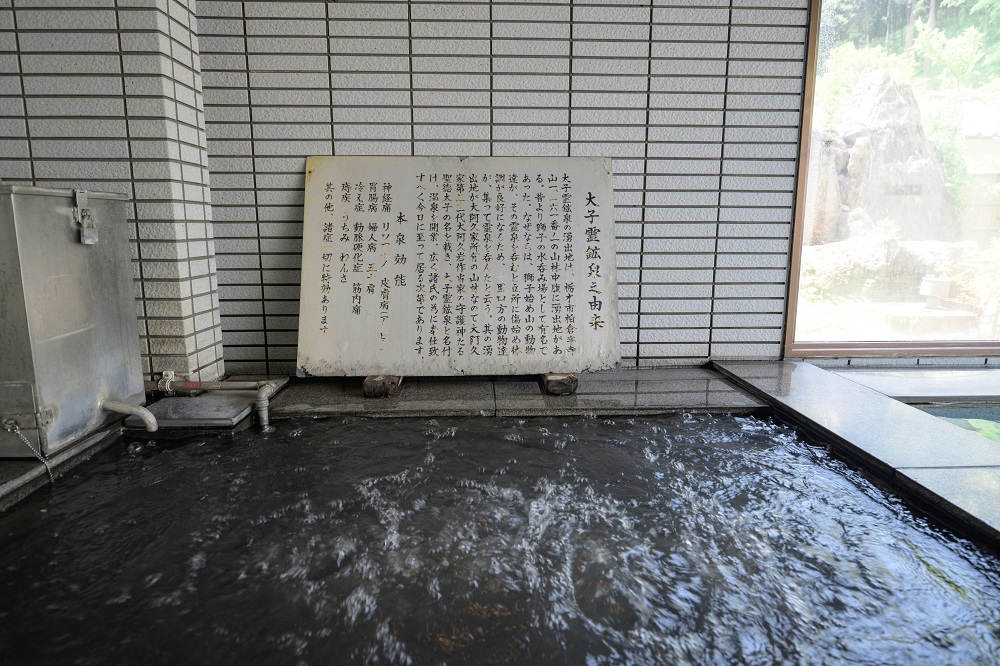 大子霊鉱泉之由来
大子霊鉱泉の湧出地は、栃木市柏倉字寺
山一、六一番ノ一の山林中腹に湧出地があ
る。昔より獅子の水呑み場として有名で
あった。なぜならば、獅子始め山の動物
達が、その霊泉を呑むと立所に傷始め体
調が良好になるため、里四方の動物達
が、集って霊泉を呑んだと云う。其の湧
出地が大阿久家所有の山林なので大阿久
家第二代大阿久岩作当家の守護神たる
聖徳太子の名を戴き、太子霊鉱泉と名付
け、温泉を開業、広く諸氏の為に奉仕致
すべく今日に至って居る次第であります。
本泉効能
神経痛 リウマチ 皮膚病
胃腸病 婦人病 五十肩
冷え症 動脈硬化症 筋肉痛
痔疾 うちみ ねんざ
其の他、諸症一切に特効あります